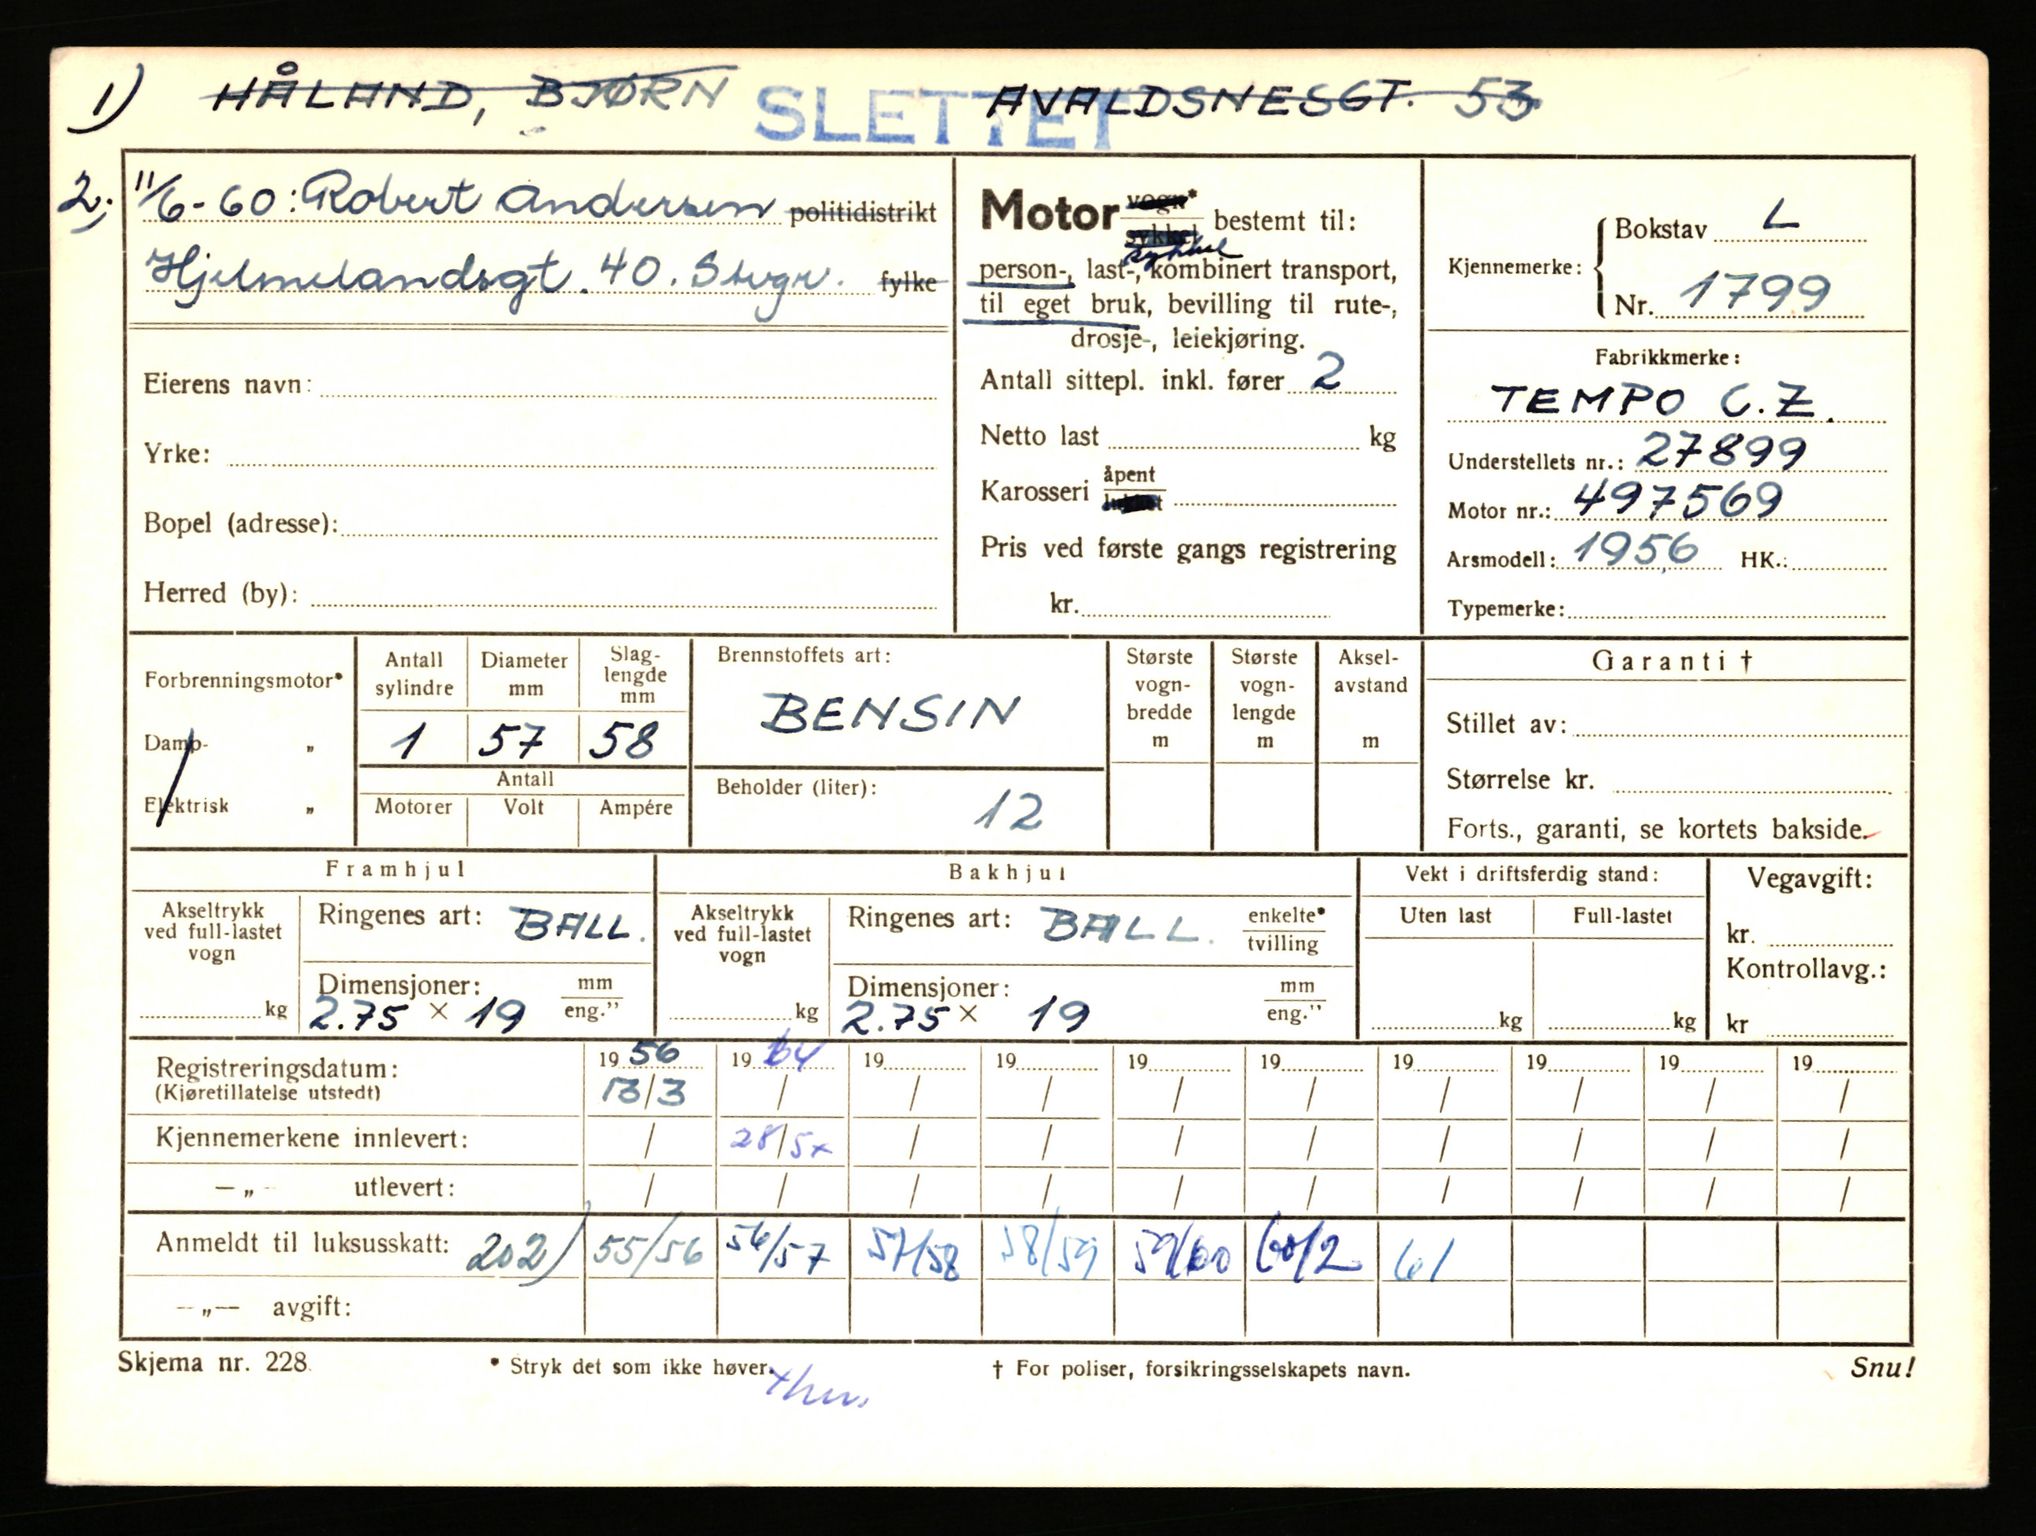 1) HÅLAND, BJØRN AVALDSNESGT. 53
SLETTET
2. 11/6-60: Robert Andersen politidistrikt
Hjelmelandsgt. 40. Svgr. fylke
Eierens navn:
Yrke:
Bopel (adresse):
Herred (by):
Motor vogn* sykkel bestemt til:
sykkel
person-, last-, kombinert transport,
til eget bruk, bevilling til rute-,
drosje-, leiekjøring.
Antall sittepl. inkl. fører 2
Netto last kg
Karosseri åpent lukket
Pris ved første gangs registrering
kr.
Kjennemerke: Bokstav L
Nr. 1799
Fabrikkmerke:
TEMPO C.Z.
Understellets nr.: 27899
Motor nr.: 497569
Arsmodell: 1956 HK.:
Typemerke:
Forbrenningsmotor*
Damp- „
Elektrisk „
Antall sylindre Diameter mm Slag-lengde mm
1 57 58
Antall
Motorer Volt Ampére
Brennstoffets art:
BENSIN
Beholder (liter):
12
Største vogn-bredde m
Største vogn-lengde m
Aksel-avstand m
Garanti †
Stillet av:
Størrelse kr.
Forts., garanti, se kortets bakside.
Framhjul
Akseltrykk ved full-lastet vogn
kg
Ringenes art: BALL.
Dimensjoner: mm eng.”
2.75 × 19
Bakhjul
Akseltrykk ved full-lastet vogn
kg
Ringenes art: BALL. enkelte* tvilling
Dimensjoner: mm eng.”
2.75 × 19
Vekt i driftsferdig stand:
Uten last Full-lastet
kg kg
Vegavgift:
kr.
Kontrollavg.:
kr
Registreringsdatum: 1956 1964 19 19 19 19 19 19 19 19
(Kjøretillatelse utstedt) 13/3 / / / / / / / / /
Kjennemerkene innlevert: / 28/5x / / / / / / / /
— „ — utlevert: / / / / / / / / / /
Anmeldt til luksusskatt: 202) 55/56 56/57 57/58 58/59 59/60 60/2 61
— „ — avgift:
Skjema nr. 228. * Stryk det som ikke høver. † For poliser, forsikringsselskapets navn. Snu!